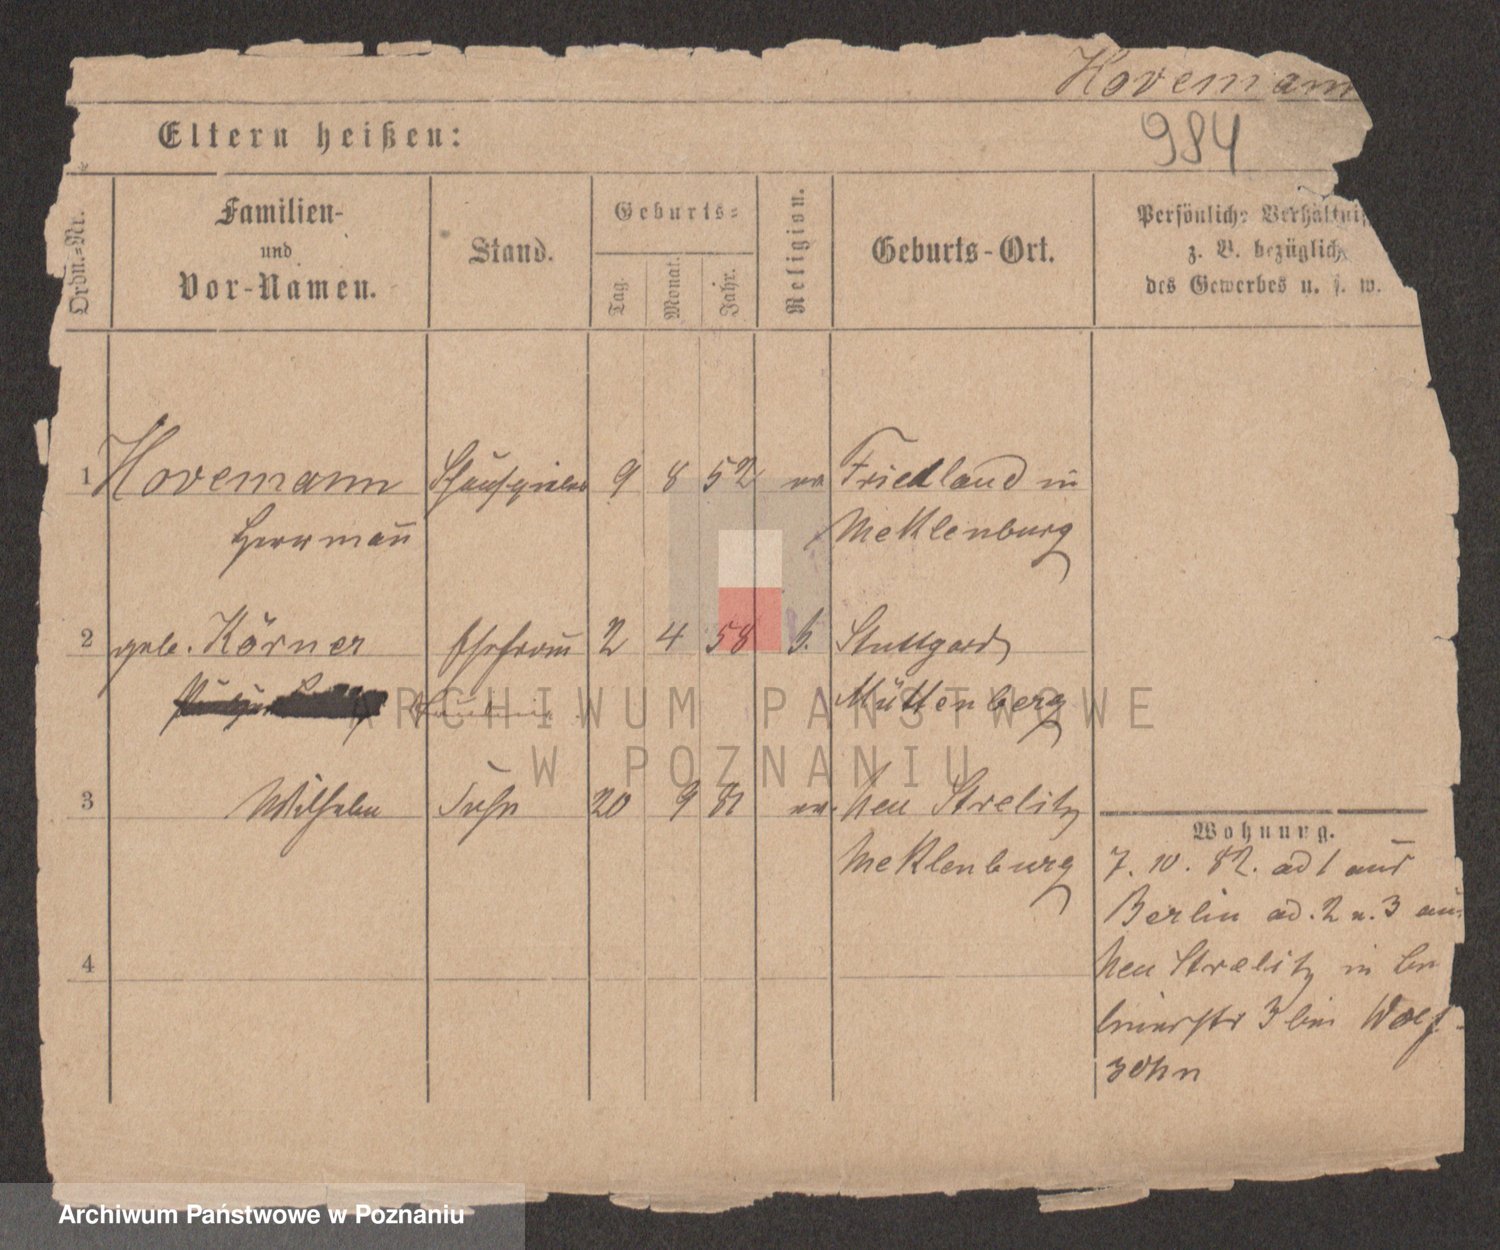 Hovemann
984
Eltern heißen:
Ordn.-Nr.
Familien-
und
Vor-Namen.
Stand.
Geburts-
Tag.
Monat.
Jahr.
Religion.
Geburts-Ort.
Persönliche Verhältnis
z. B. bezüglich
des Gewerbes u. s. w.
1 Hovemann Schauspieler 9 8 52 ev Friedland in
Herrmann Meklenburg
2 geb. Körner Ehefrau 2 4 58 k. Stuttgard
Müttenberg
3 Wilhelm Sohn 20 9 81 ev. Neu Strelitz
Meklenburg
4
Wohnung.
7. 10. 82. ad 1 aus
Berlin ad. 2 u. 3 aus
Neu Strelitz in
3 bei Wolf-
sohn
ARCHIWUM PAŃSTWOWE
W POZNANIU
Archiwum Państwowe w Poznaniu